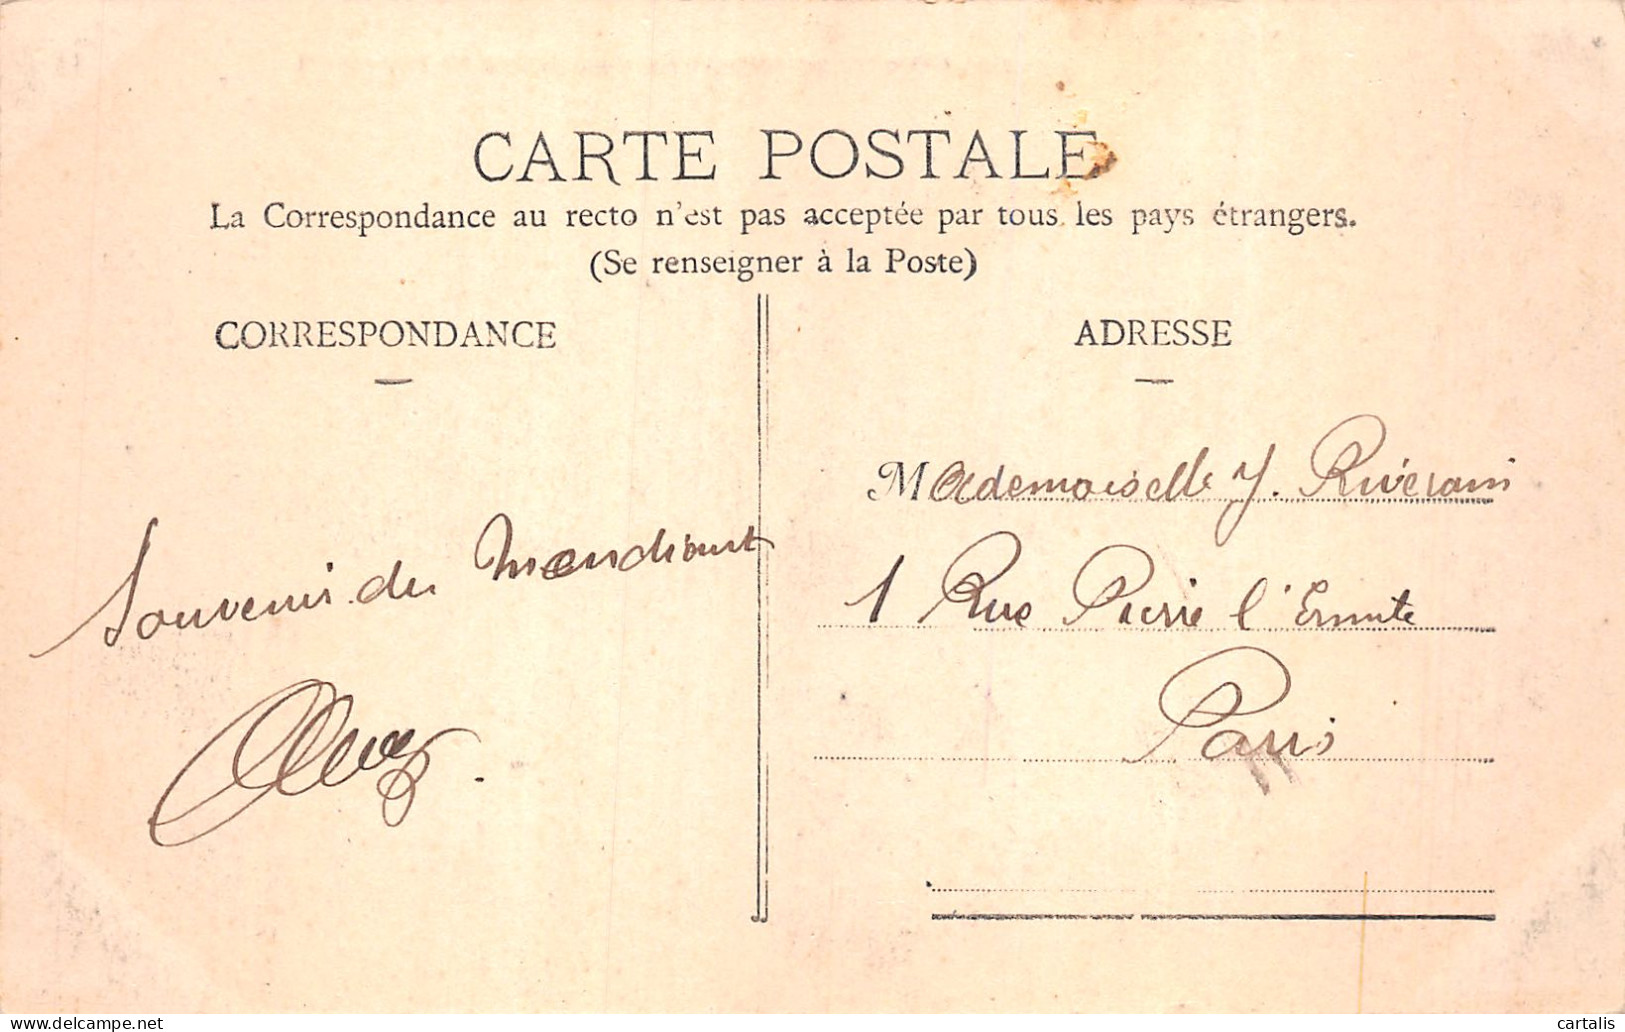 CARTE POSTALE
La Correspondance au recto n'est pas acceptée par tous les pays étrangers.
(Se renseigner à la Poste)
CORRESPONDANCE
Souvenir du
ADRESSE
Mademoiselle J. Riverain
1 Rue Pierre l'Ermite
Paris
delcampe.net
cartalis